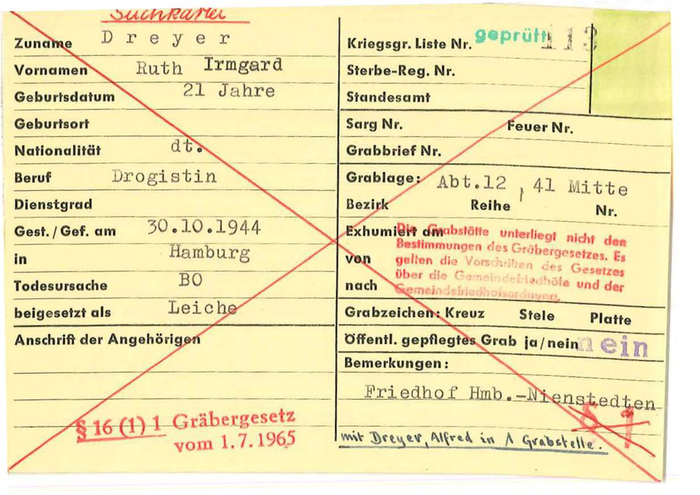 Suchkartei
Zuname Dreyer
Vornamen Ruth Irmgard
Geburtsdatum 21 Jahre
Geburtsort
Nationalität dt.
Beruf Drogistin
Dienstgrad
Gest./Gef. am 30.10.1944
in Hamburg
Todesursache BO
beigesetzt als Leiche
Anschrift der Angehörigen
§ 16 (1) 1 Gräbergesetz
vom 1.7.1965
Kriegsgr. Liste Nr. geprüft 113
Sterbe-Reg. Nr.
Standesamt
Sarg Nr. Feuer Nr.
Grabbrief Nr.
Grablage: Abt.12 , 41 Mitte
Bezirk Reihe Nr.
Exhumiert am
von
nach
Die Grabstätte unterliegt nicht den
Bestimmungen des Gräbergesetzes. Es
gelten die Vorschriften des Gesetzes
über die Gemeindefriedhöfe und der
Gemeindefriedhofsordnung.
Grabzeichen: Kreuz Stele Platte
Öffentl. gepflegtes Grab ja/nein nein
Bemerkungen:
Friedhof Hmb.-Nienstedten
§ 1
mit Dreyer, Alfred in 1 Grabstelle.